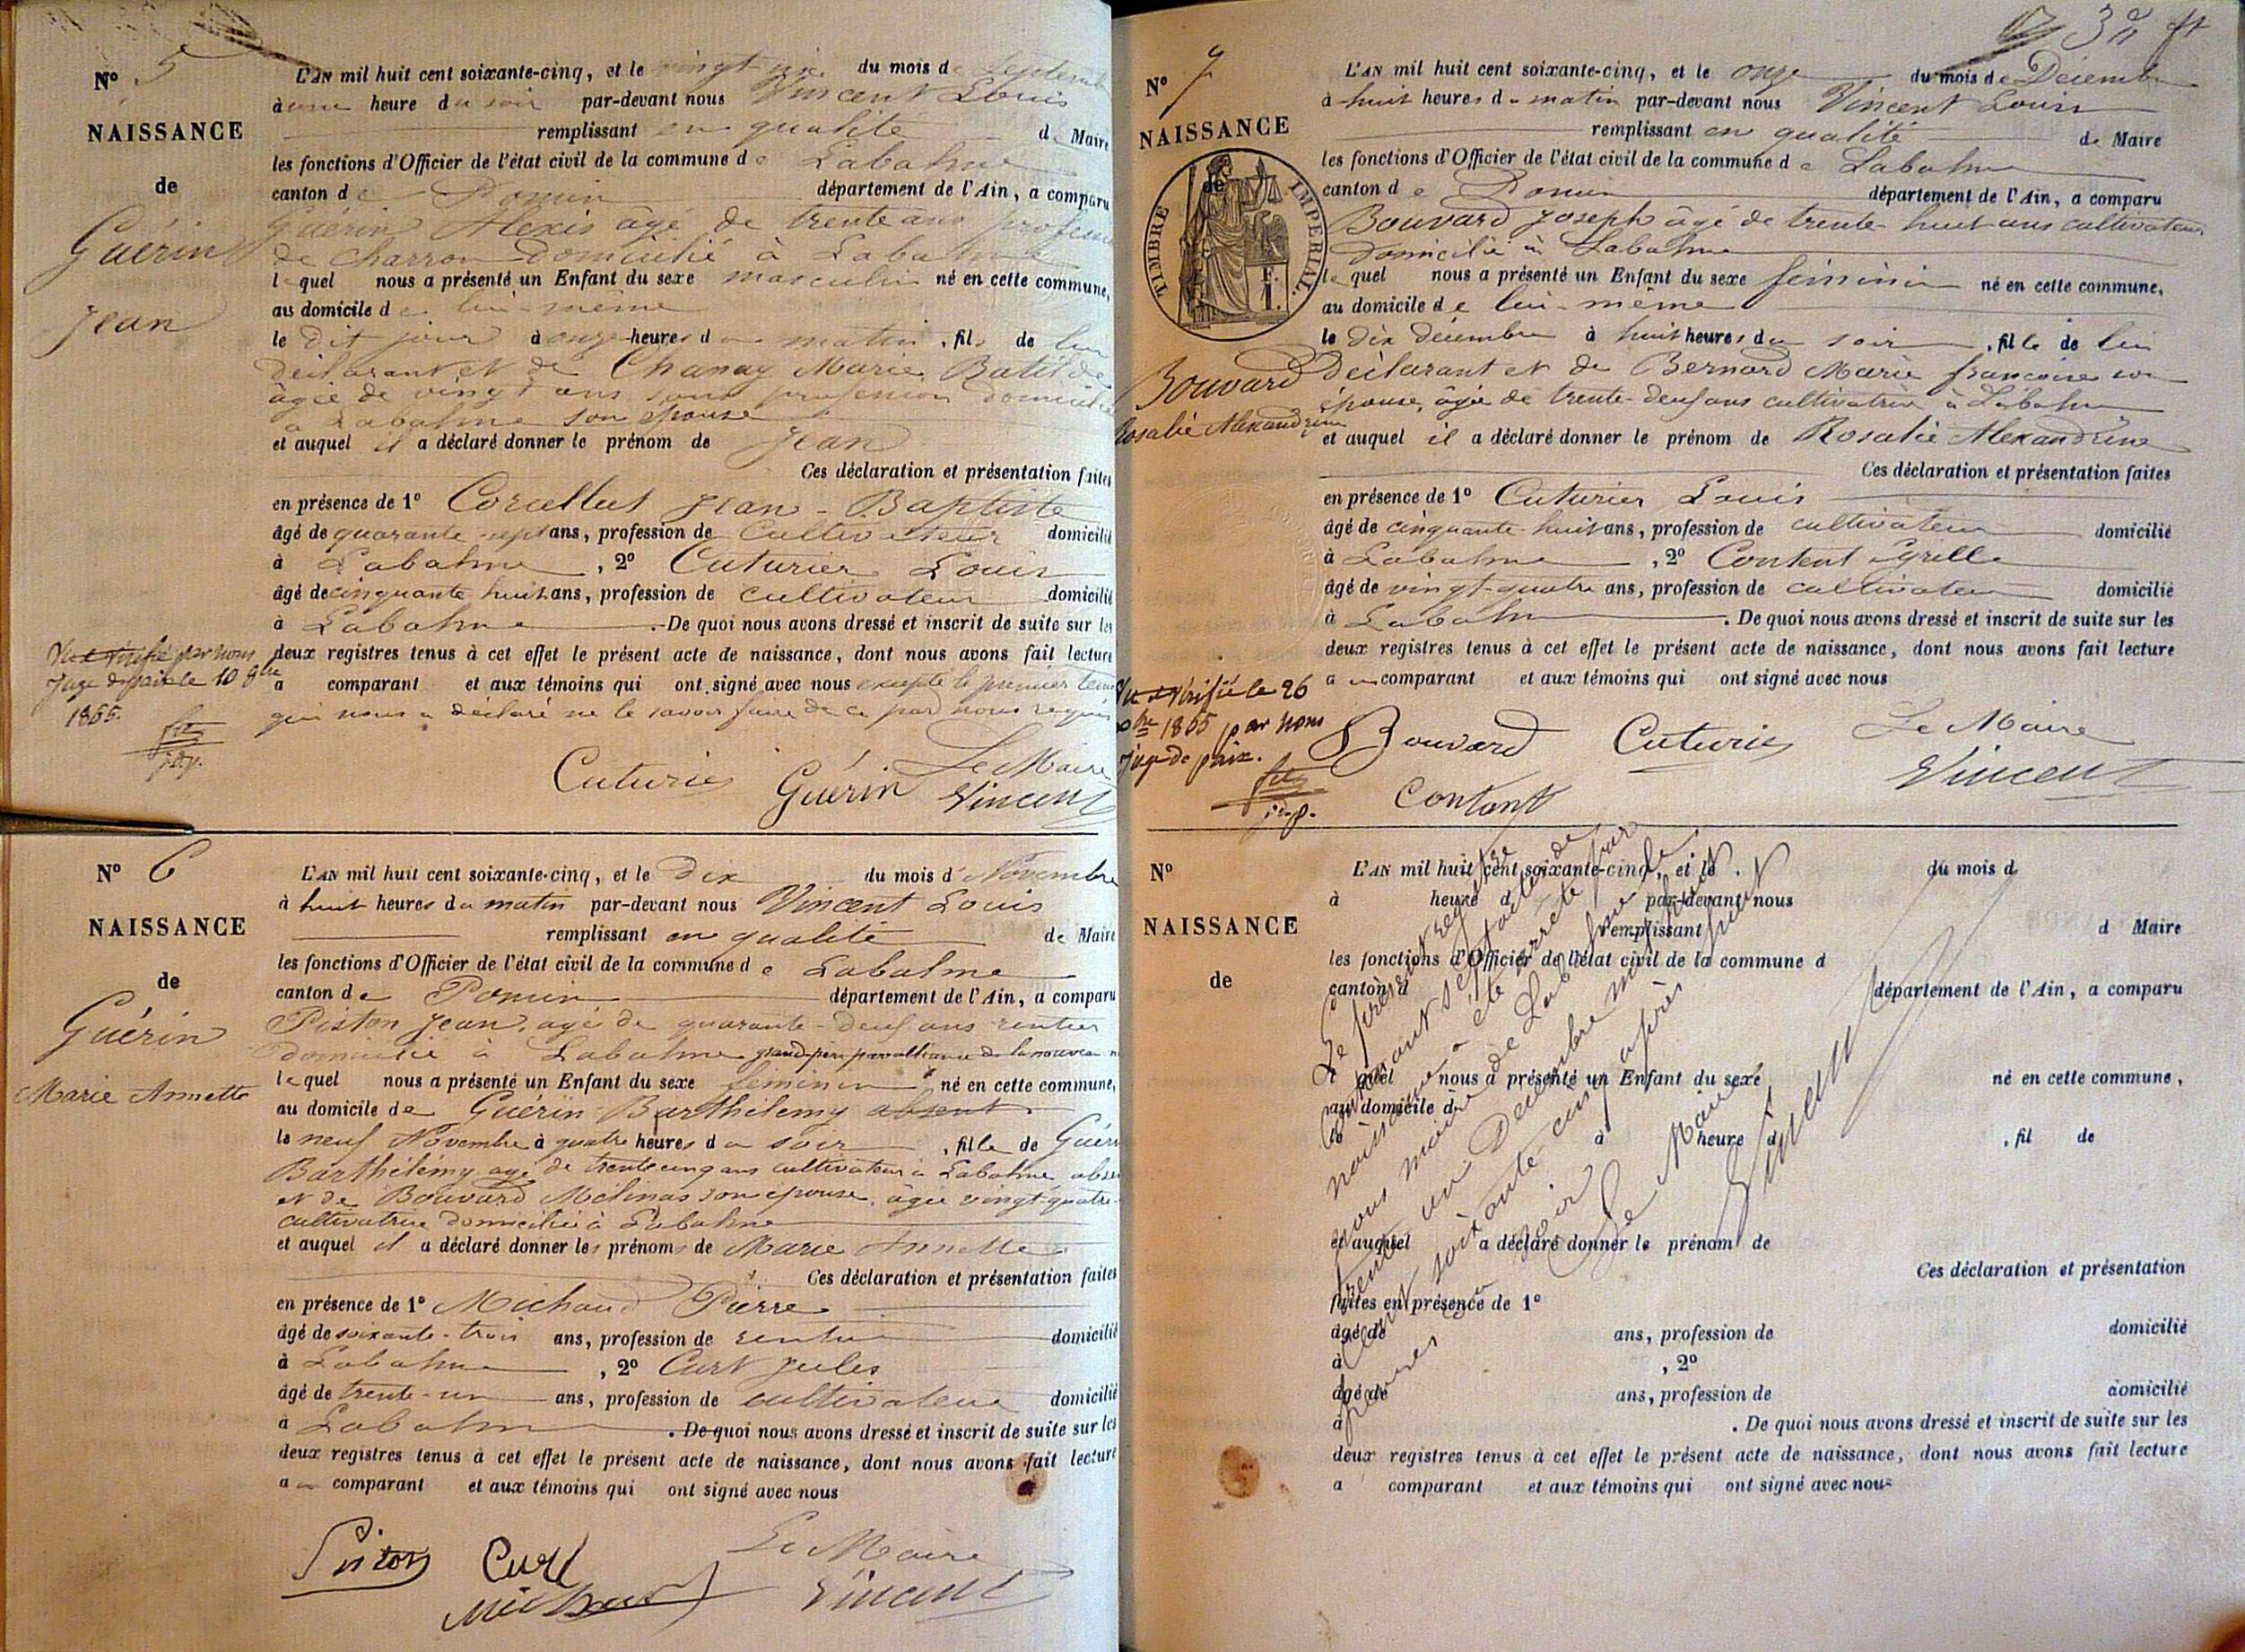 N° 5
NAISSANCE
de
Guérin
Jean
L'AN mil huit cent soixante-cinq, et le vingt du mois de Septembre
à une heure du soir par-devant nous Vincent Louis
remplissant en qualité de Maire
les fonctions d'Officier de l'état civil de la commune de Labalme
canton de Poncin département de l'Ain, a comparu
Guérin Alexis âgé de trente ans profession
de charron domicilié à Labalme
lequel nous a présenté un Enfant du sexe masculin né en cette commune,
au domicile de lui-même
le dit jour à onze heures du matin, fils de lui
déclarant et de Chanay Marie Batilde
âgée de vingt ans sans profession domiciliée
à Labalme son épouse
et auquel il a déclaré donner le prénom de Jean
Ces déclaration et présentation faites
en présence de 1° Corcellut Jean-Baptiste
âgé de quarante-sept ans, profession de Cultivateur domicilié
à Labalme, 2° Cuturier Louis
âgé de cinquante huit ans, profession de cultivateur domicilié
à Labalme. De quoi nous avons dressé et inscrit de suite sur les
deux registres tenus à cet effet le présent acte de naissance, dont nous avons fait lecture
a comparant et aux témoins qui ont signé avec nous excepté le premier témoin
qui nous a déclaré ne le savoir faire de ce par nous requis
Vu et vérifié par nous
Juge de paix le 10 8bre
1865.
j.d.p.
Cuturier Guérin Le Maire
Vincent
N° 6
NAISSANCE
de
Guérin
Marie Annette
L'AN mil huit cent soixante-cinq, et le Dix du mois d' Novembre
à huit heures du matin par-devant nous Vincent Louis
remplissant en qualité de Maire
les fonctions d'Officier de l'état civil de la commune de Labalme
canton de Poncin département de l'Ain, a comparu
Piston Jean, agé de quarante-deux ans rentier
domicilié à Labalme grand-père par alliance de la nouveau
lequel nous a présenté un Enfant du sexe féminin né en cette commune,
au domicile de Guérin Barthélemy absent
le neuf Novembre à quatre heures du soir, fille de Guérin
Barthélémy agé de trente cinq ans cultivateur à Labalme absent
et de Bouvard Mélinas son épouse, âgée vingt-quatre
cultivatrice domiciliée à Labalme
et auquel il a déclaré donner les prénoms de Marie Annette
Ces déclaration et présentation faites
en présence de 1° Michaud Pierre
âgé de soixante-trois ans, profession de rentier domicilié
à Labalme, 2° Curt Jules
âgé de trente-un ans, profession de cultivateur domicilié
à Labalme. De quoi nous avons dressé et inscrit de suite sur les
deux registres tenus à cet effet le présent acte de naissance, dont nous avons fait lecture
au comparant et aux témoins qui ont signé avec nous
Piston Curt Le Maire
Michaud Vincent
N° 7
NAISSANCE
de
TIMBRE IMPÉRIAL.
Bouvard
Rosalie Alexandrine
L'AN mil huit cent soixante-cinq, et le onze du mois de Décembre
à huit heures du matin par-devant nous Vincent Louis
remplissant en qualité de Maire
les fonctions d'Officier de l'état civil de la commune de Labalme
canton de Poncin département de l'Ain, a comparu
Bouvard Joseph âgé de trente-huit ans cultivateur
domicilié à Labalme
lequel nous a présenté un Enfant du sexe féminin né en cette commune,
au domicile de lui-même
le dix décembre à huit heures du soir, fille de lui
déclarant et de Bernard Marie françoise son
épouse, âgée de trente-deux ans cultivatrice à Labalme
et auquel il a déclaré donner le prénom de Rosalie Alexandrine
Ces déclaration et présentation faites
en présence de 1° Cuturier Louis
âgé de cinquante-huit ans, profession de cultivateur domicilié
à Labalme, 2° Content
âgé de vingt-quatre ans, profession de cultivateur domicilié
à Labalme. De quoi nous avons dressé et inscrit de suite sur les
deux registres tenus à cet effet le présent acte de naissance, dont nous avons fait lecture
au comparant et aux témoins qui ont signé avec nous
Vu et Vérifié le 26
Xbre 1865 par nous
Juge de paix.
j.d.p.
Bouvard Cuturier Le Maire
Contant Vincent
N°
NAISSANCE
de
L'AN mil huit cent soixante-cinq, et le du mois d
à heure d par-devant nous
remplissant d Maire
les fonctions d'Officier de l'état civil de la commune d
canton d département de l'Ain, a comparu
l quel nous a présenté un Enfant du sexe né en cette commune,
au domicile d
le à heure d, fil de
et auquel a déclaré donner le prénom de
Ces déclaration et présentation
faites en présence de 1°
âgé de ans, profession de domicilié
à, 2°
âgé de ans, profession de domicilié
à. De quoi nous avons dressé et inscrit de suite sur les
deux registres tenus à cet effet le présent acte de naissance, dont nous avons fait lecture
a comparant et aux témoins qui ont signé avec nous
Le présent registre
comprenant sept actes de
naissance a été arrêté par
nous maire de Labalme le
trente un Décembre mil huit
cent soixante cinq après huit
heures du soir
Le Maire
Vincent